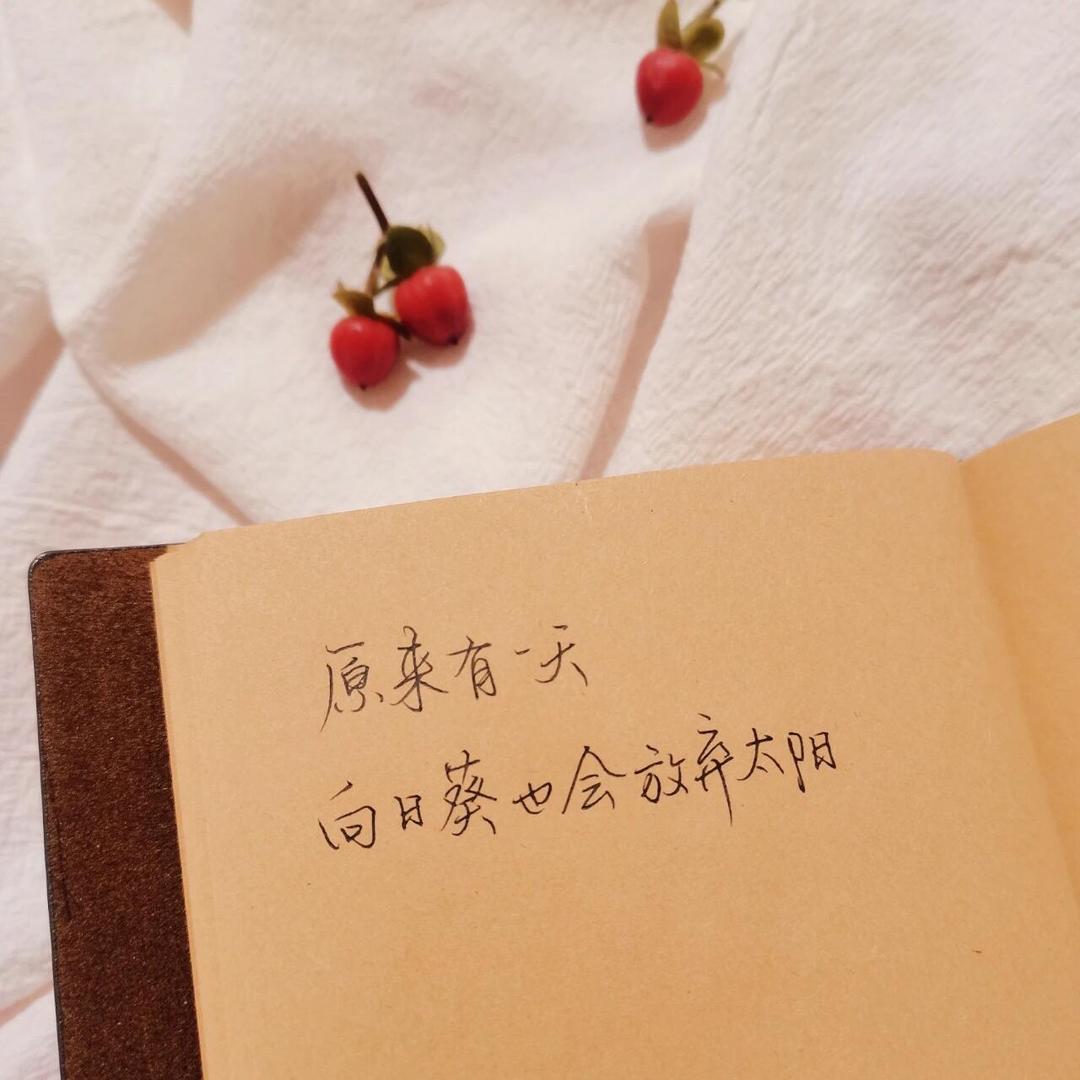 原来有一天
向日葵也会放弃太阳